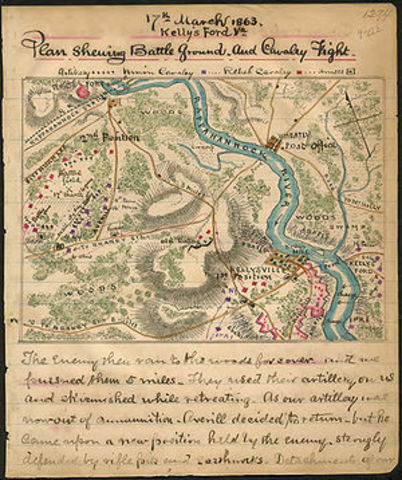 17th March 1863.
Kellys Ford Va
1274
Plan Shewing Battle Ground. And Cavalry Fight.
Artillery Union Cavalry Rebel Cavalry
RAPPAHANNOCK RIVER
WOODS
WHEATLY
Post Office
2nd Position
WOODS
SWAMP
WOODS
KELLYSVILLE
1st Position
KELLYS
FORD
WOODS
The Enemy then ran to the woods for cover and we
pursued them 5 miles. They used their artillery on us
and skirmished while retreating. As our artillery was
now out of ammunition. Averill decided to return. but he
came upon a new position held by the enemy. strongly
defended by rifle pits and earthworks. Detachments of our